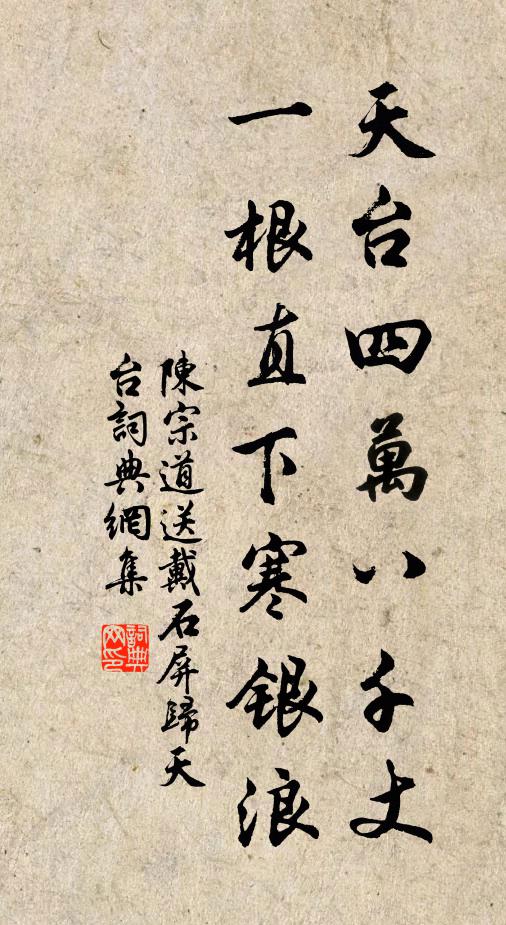 天台四萬八千丈
一根直下寒銀浪
陳宗道送戴石屏歸天
台詞典網集
詞典
网印